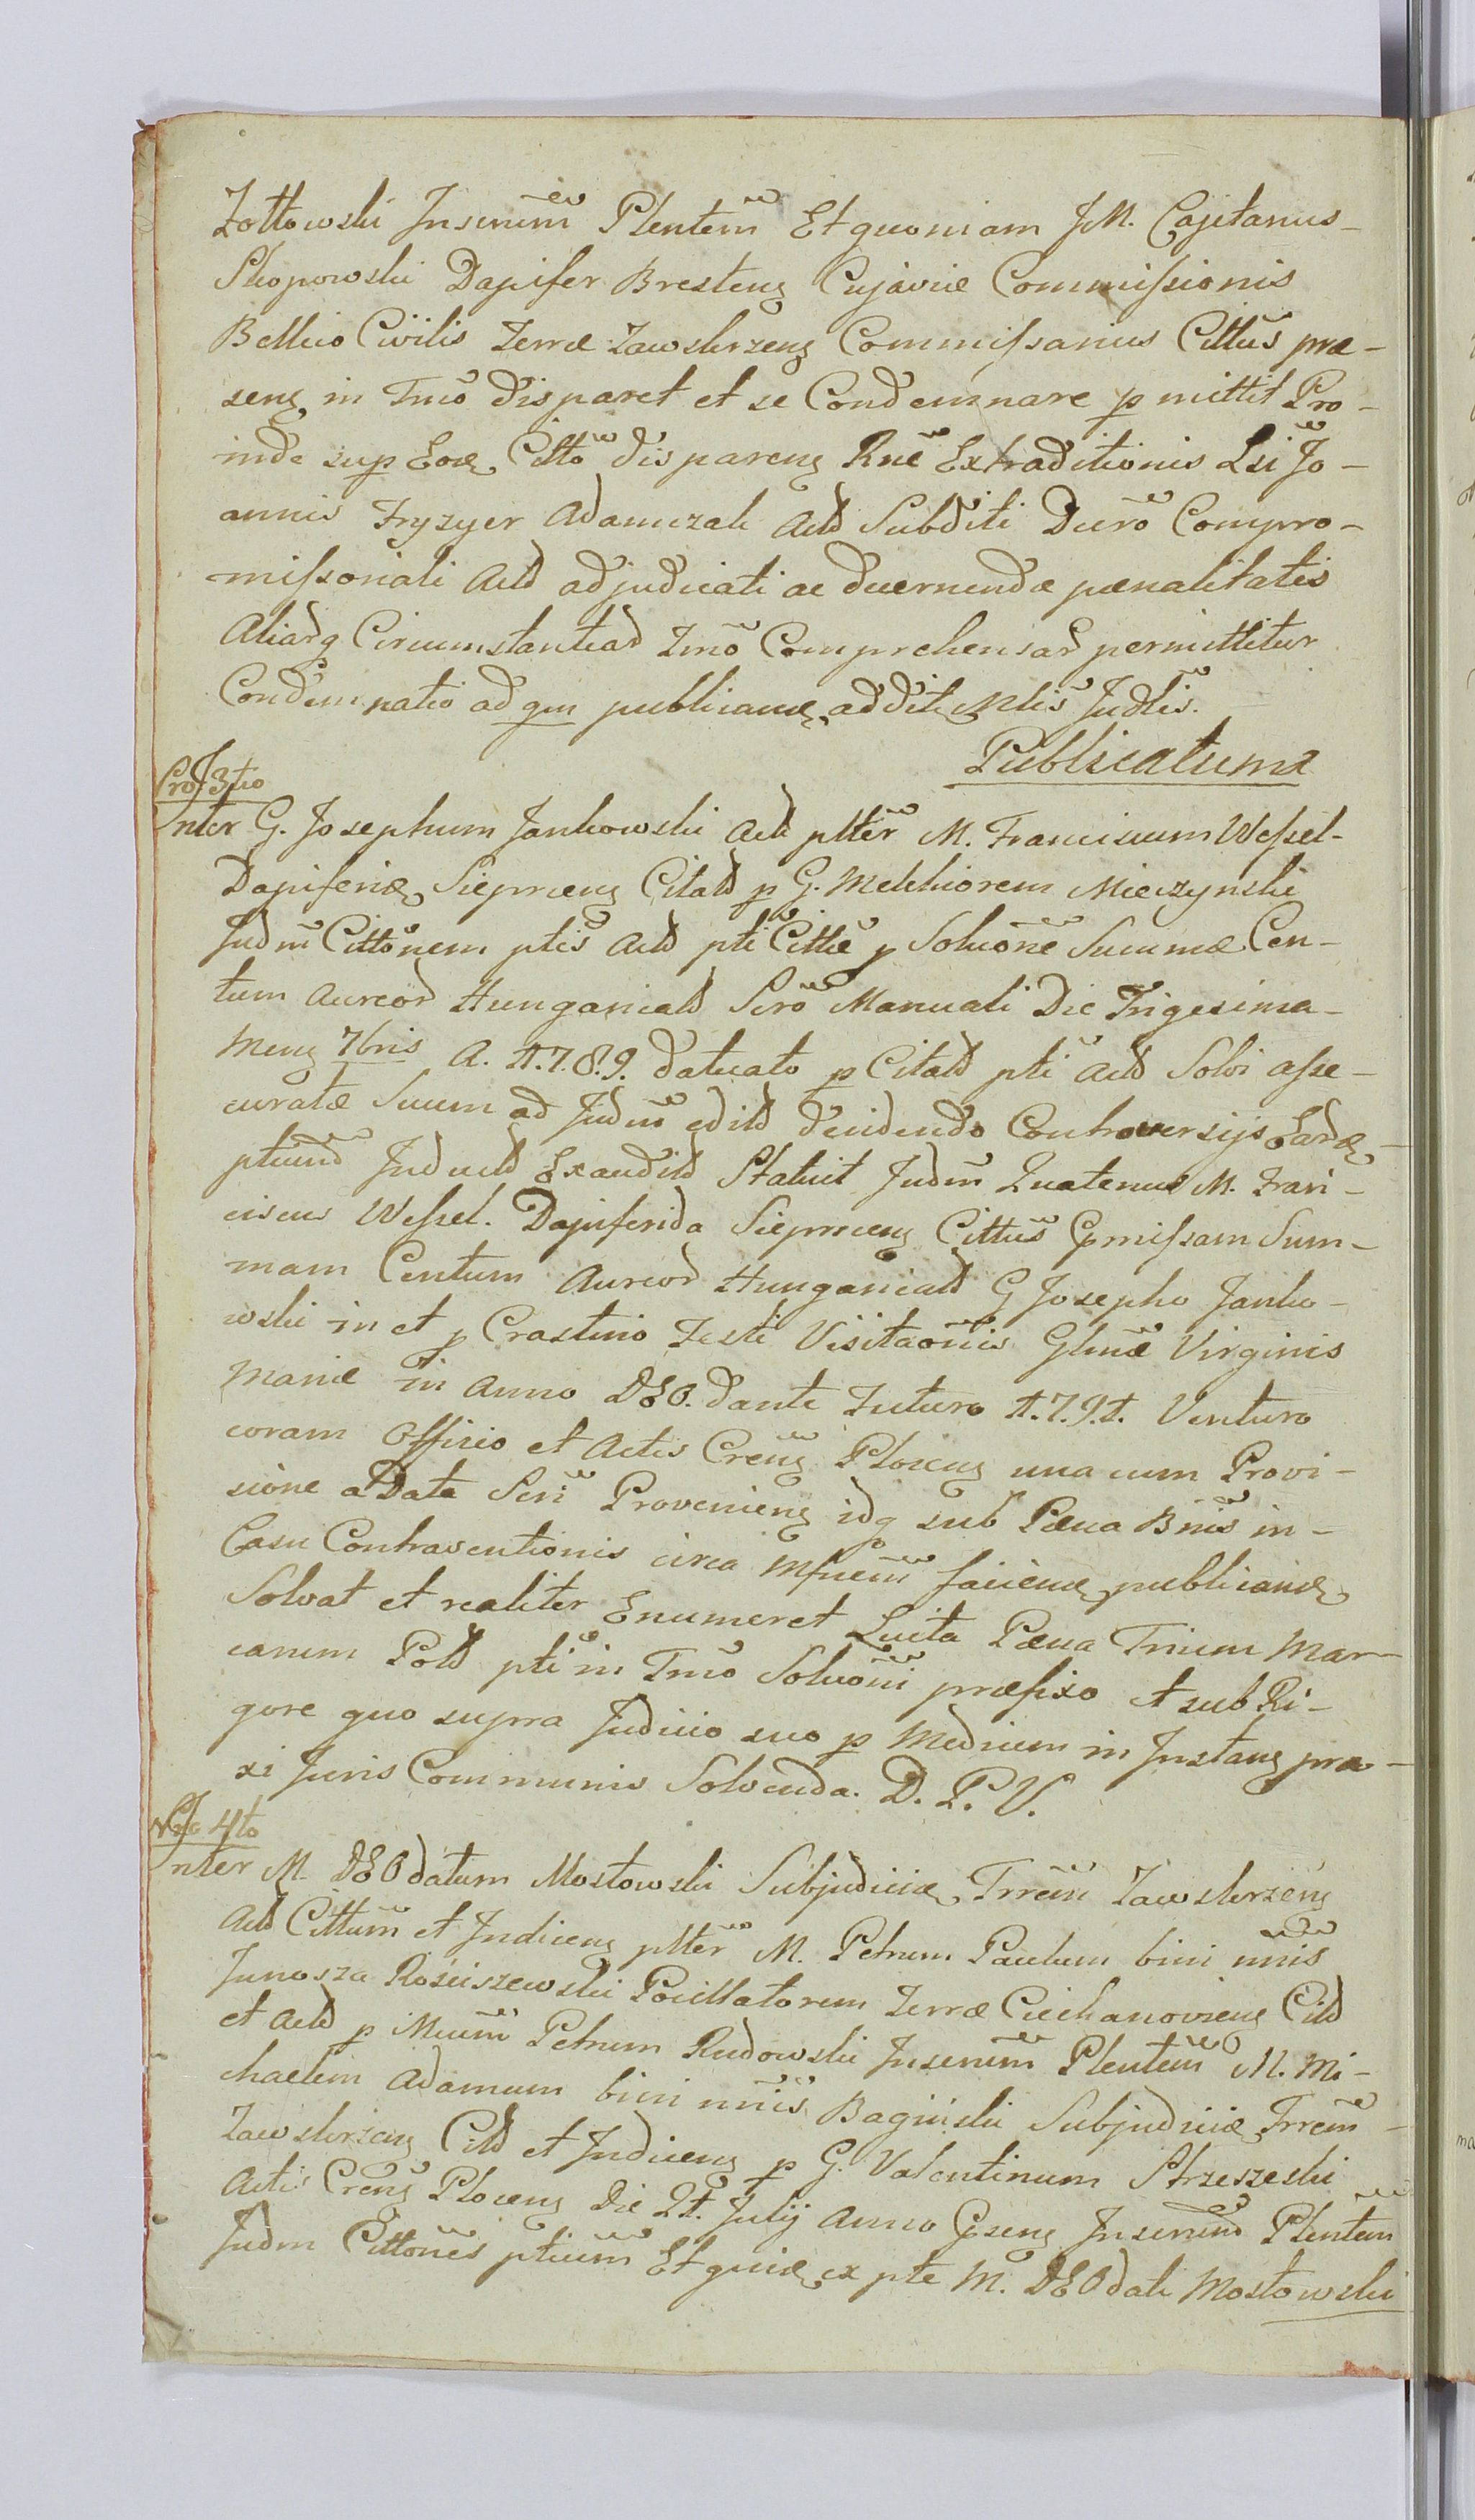 Zołtowski Inserem̃ Plentem̃ Et quoniam J.M. Cajetanus
Skopowski Dapifer Bresteng Cujaviæ Commissionis
Bellico Civilis Terræ Zawskrzeng Commissarius Citt̃us præ-
seng in Tñio disparet et se Condemnare p mittit Pro-
inde sup Eoq Citt̃o dispareng Rñe Extraditionis Lsi Jo-
annis Fryzyer Adamczak Actd Subditi Decr̃o Compro-
missoriali Actd adjudicati ac decernendæ pœnalitatis
Aliarq Circumstantiar Tm̃o Comprehensar permittitur
Condemnatio ad qm publicanq addit Mlis̃ Judl̃is.
Publicatum
Pro 3tio
Inter G. Josephum Jankowski Act pltẽr M. Franciscum Wessel
Dapiferid Siepnceng Citatd p G. Melchiorem Mieczynski
Judm̃ Citt̃onem ptis̃ Actd pti Citt̃i p Soluõne Summæ Cen-
tum Aureor Hungaricald Scr̃o Manuali Die Trigesima
Meng 7bris A. 1.7.8.9. datuato p Citatd pti Actd Solvi asse-
curatæ Suum ad Judm̃ editd decidendo Controversijs Earq
ptium Inductd Exauditd Statuit Judm̃ Quatenus M. Fran-
ciscus Wessel. Dapiferida Siepnceng Citt̃us p̃missam Sum-
mam Centum Aureor Hungaricald G Josepho Janko-
wski in et p Crastino Festi Visitaõnis Glm̃æ Virginis
Mariæ in Anno DEO. dante Futuro 1.7.9.1. Venturo
coram Officio et Actis Cr̃eng Ploceng una cum Provi-
sione a Data Scr̃i Provenieng idq sub Pæna Bñis in
Casu Contraventionis circa Mfñem facienq publicanq
Solvat et realiter Enumeret Luita Pæna Trium Mar-
carum Pold pti in Tm̃o Soluõni præfixo et sub Ri-
gore quo supra Judicio suo p Medium in Instang pro-
xi Juris Communis Solvenda. D. P. V.
4to
Inter M. DEOdatum Mostowski Subjudicid Trr̃em Zawskrzeng
Actd Citt̃um et Indiceng pltẽr M. Petrum Paulum bini ñnis
Junosza Rościszewski Pocillatorem Terræ Ciechanovieng Citd
et Actd p Mcum̃ Petrum Rudowski Inserem̃ Plentem̃ M. Mi-
chaelem Adamum bini ñnis Baginski Subjudicid Trr̃em
Zawskrzeng Citd et Indiceng p G. Valentinum Strzeszeski
Actis Cr̃eng Ploceng Die 21. Julij Anno p̃seng Inserem̃ Plentem̃
Judm Citt̃ones ptium̃ Et quia ex pte M. DEOdati Mostowski